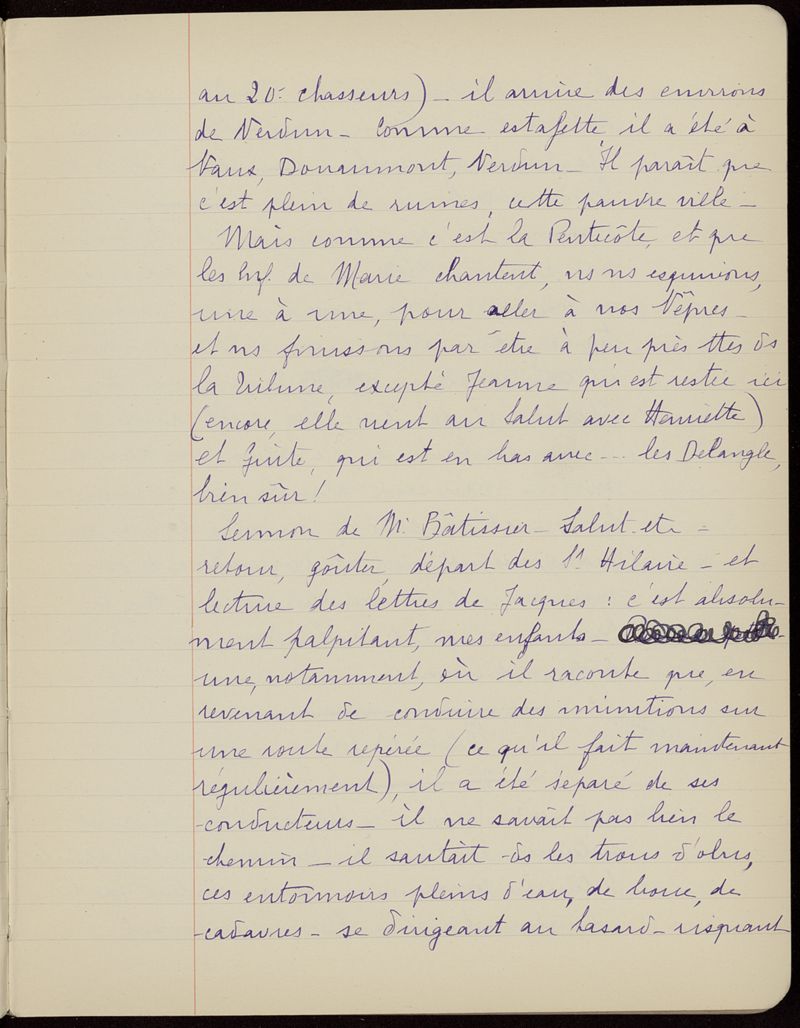 au 20e chasseurs) - il arrive des environs
de Verdun - Comme estafette il a été à
Vaux, Douaumont, Verdun - Il paraît que
c'est plein de ruines, cette pauvre ville -
Mais comme c'est la Pentecôte, et que
les Enf. de Marie chantent, ns ns esquivons,
une à une, pour aller à nos Vêpres -
et ns finissons par être à peu près ttes ds
la Tribune, excepté Jeanne qui est restée ici
(encore, elle vient au Salut avec Henriette)
et Zinte, qui est en bas avec --- les Delangle,
bien sûr !
Sermon de Mr Bâtissier - Salut et -
retour, goûter, départ des St Hilaire - et
lecture des lettres de Jacques : c'est absolu-
ment palpitant, mes enfants -
une, notamment, où il raconte que, en
revenant de conduire des munitions sur
une route repérée (ce qu'il fait maintenant
régulièrement), il a été séparé de ses
conducteurs - il ne savait pas bien le
chemin - il sautait ds les trous d'obus,
ces entonnoirs pleins d'eau, de boue, de
cadavres - se dirigeant au hasard - risquant